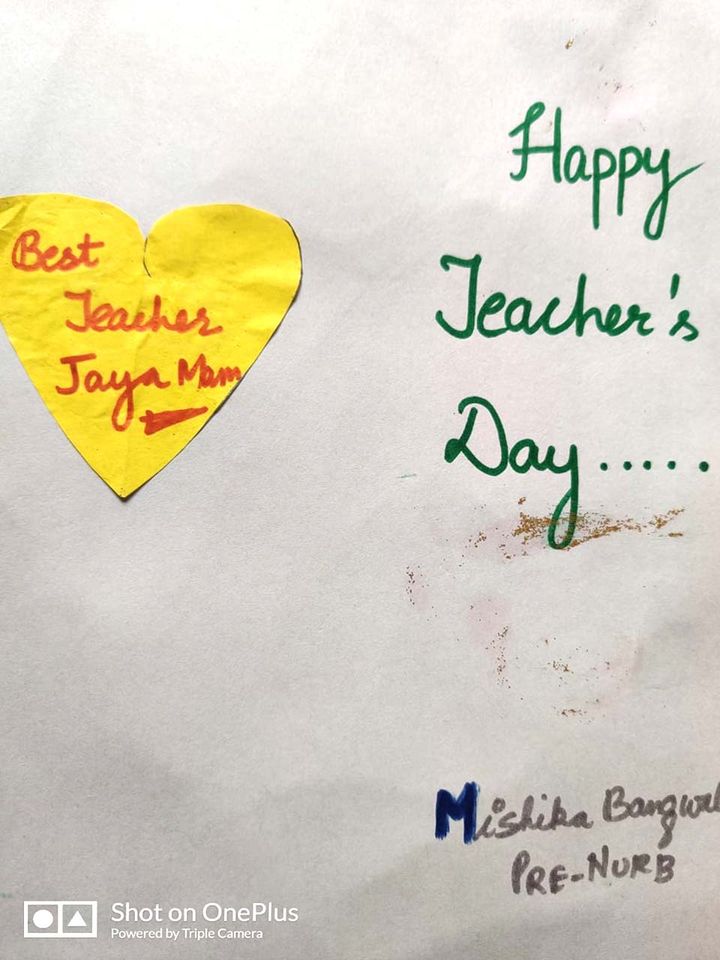 Best
Teacher
Jaya Mam
Happy
Teacher's
Day.....
Mishika
PRE-NURB
Shot on OnePlus
Powered by Triple Camera